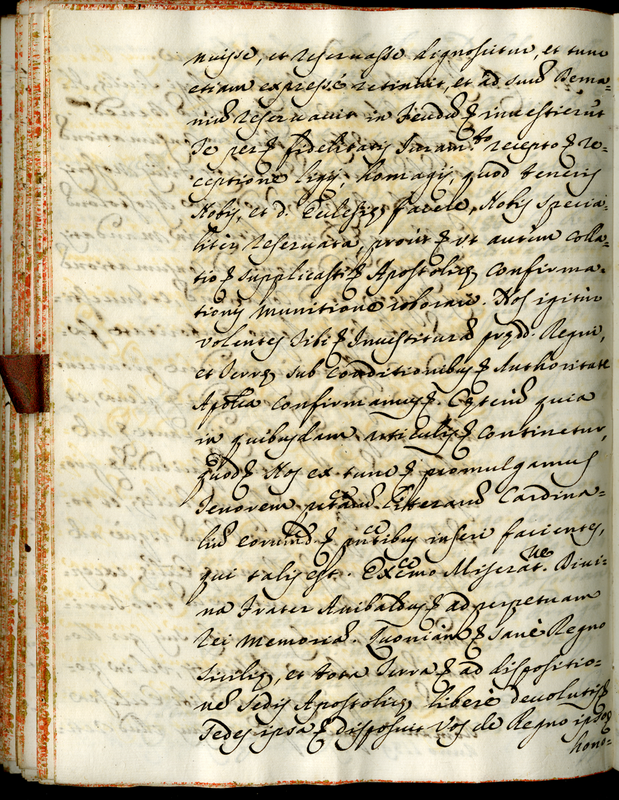 nuisse, et reservasse dignoscitur, et tunc
etiam expressé retinuit, et ad suũ Dema-
niũ reservavit in feudũ & investierũt
Te per & fidelitatis Juram.to recepto & re-
ceptione ligij, homagij, quod teneris
Nobis, et d. Ecclesię facere, Nobis specia-
liter reservata, prout & ut autem Colla-
tio & supplicasti & Apostolicę confirma-
tionis munitione roborari. Nos igitur
volentes Tibi & Investituram pręd. Regni,
et Terrę sub conditionibus & Authoritate
Aplica confirmamus &. Cęterũ quia
in quibusdam articulis & continetur,
quod & Nos ex tunc & promulgamus
Tenorem Litterarũ Cardina-
liũ eorumd. & pńtibus inseri facientes,
qui talis est. Miserat.ne Divi-
na frater Anibaldus & ad perpetuam
rei memoriã. Quoniam & sanè Regno
Sicilię, et tota Terra & ad dispositio-
nẽ Sedis Apostolicę liberè devolutis &
Sedes ipsa & disposuit Vos de Regno ipso &
hono-